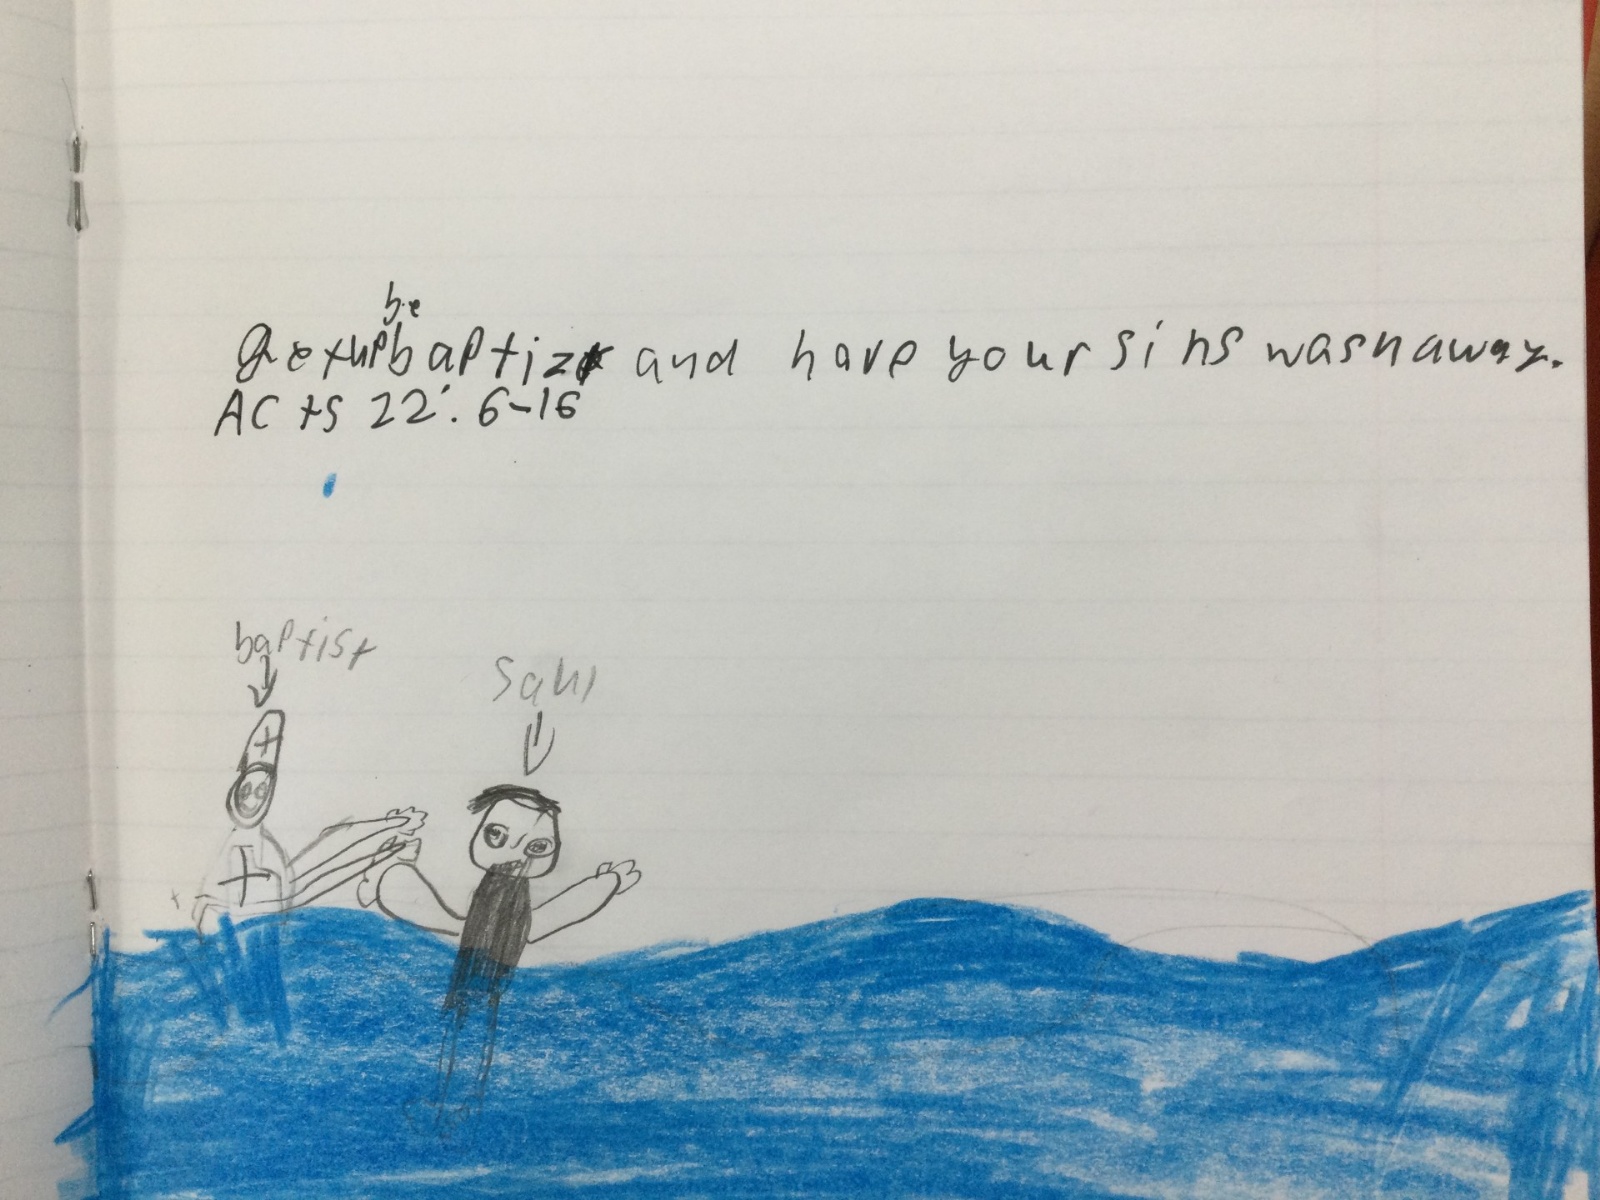 be
Getup baptiz and have your sins wash away.
Acts 22:6-16
baptist
Saul